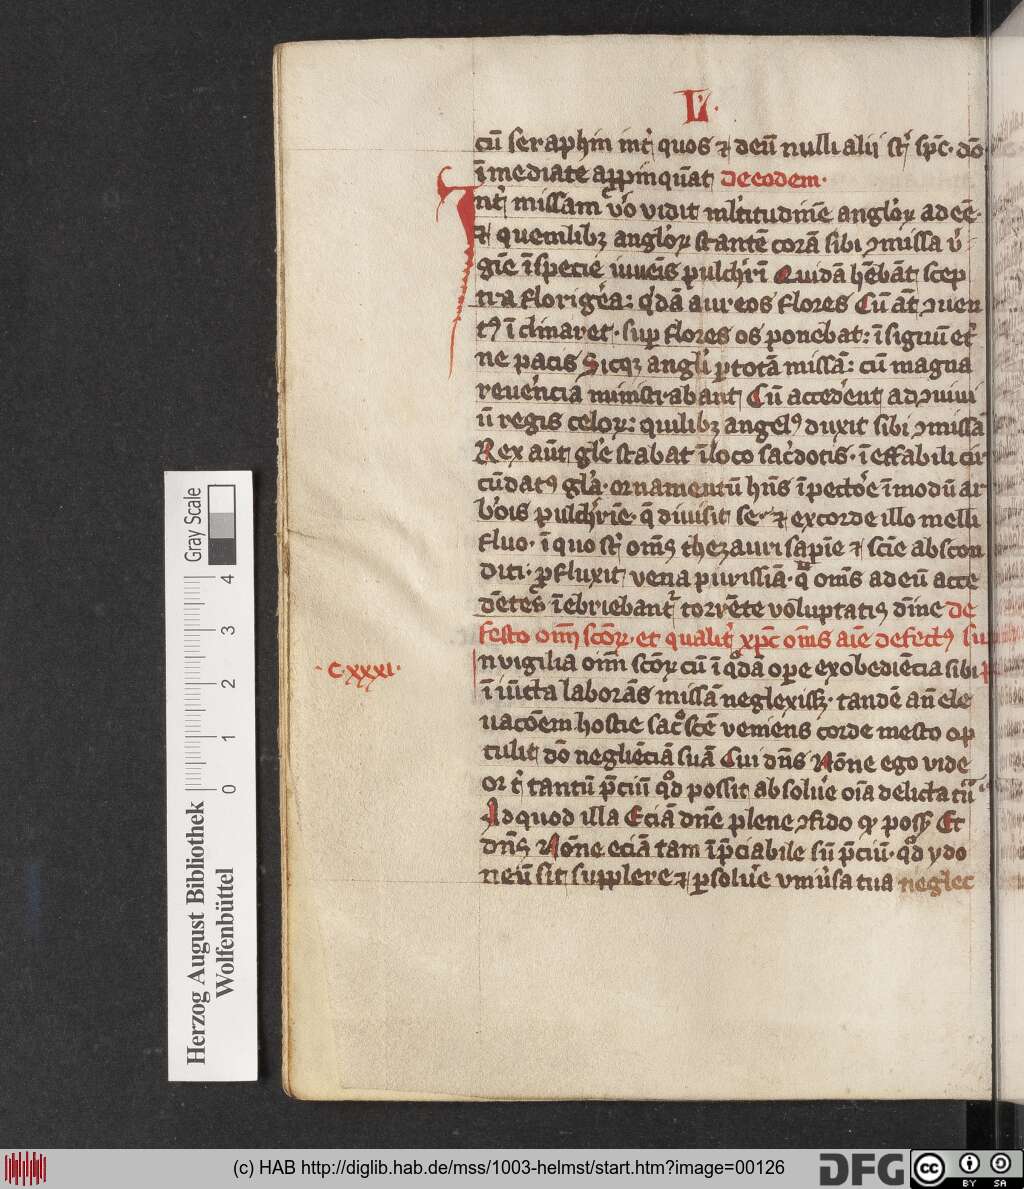 L'.
cū seraphin int̓ quos ⁊ deū nulli alii st̓ sp̄c. dō
īmediate appīnquāt de eodem.
Int̓ missam v̓o vidit ml̓titudinē anglo̓ꝝ adeē.
⁊ quemlibꝫ anglo̓ꝝ stantē corā sibi ↄmissa v̓
giē ī specie iuuēis pulch̓rī Quidā hēbāt scep
tra florige̓a: q̓dā aureos flores Cū āt ↄuen
tꝰ īclinaret. sup flores os ponebat: ī signū et̓
ne pacis Sicqꝫ angl̓i ꝑ totā missā: cū magna
reue̓ncia ministrabant Cū accede̓nt ad ↄuiui
ū regis celoꝝ: quilibꝫ angelꝰ duxit sibi ↄmissā
Rex aūt gl̓e stabat ī loco sac̓dotis. īeffabili cir
cūdatꝰ gl̓a. ornamentū hn̄s ī pecto̓e ī modū ar
bo̓is pulch̓rīe. q̄ diuisit se. ⁊ ex corde illo melli
fluo. ī quo st̓ om̄s thezauri sapīe ⁊ scīe abscon
diti. ꝓfluxit vena purissīa. q̄ om̄s ad eū acce
dētes īebriebant̓ torrēte voluptatis dīne de
festo oīm̄ scōꝝ. et qualit̓ xp̄c om̄s aīe defectꝰ su
C. xxxi.
n vigilia oīm̄ scōꝝ cū ī q̓dā oꝑe ex obediēcia sibi
ī iūcta laborās missā neglexissꝫ. tandē an̄ ele
uacōem hostie sac̓scē veniens corde mesto op
tulit dō negliēciā suā Cui dn̄s Nōne ego vide
or t̓ tantū p̄ciū qd̓ possit absolue̓ oīa delicta tua
Ad quod illa Eciā dn̄e plene ↄfido qꝫ poss̓ Et
dn̄s Nōne eciā tam īp̄ciabile sū p̄ciū. qd̓ ydo
neū sit supplere ⁊ ꝑsolue̓ vniu̓sa tua neglec
Herzog August Bibliothek
Wolfenbüttel
Gray Scale
0 1 2 3 4
(c) HAB http://diglib.hab.de/mss/1003-helmst/start.htm?image=00126
DFG
cc BY SA